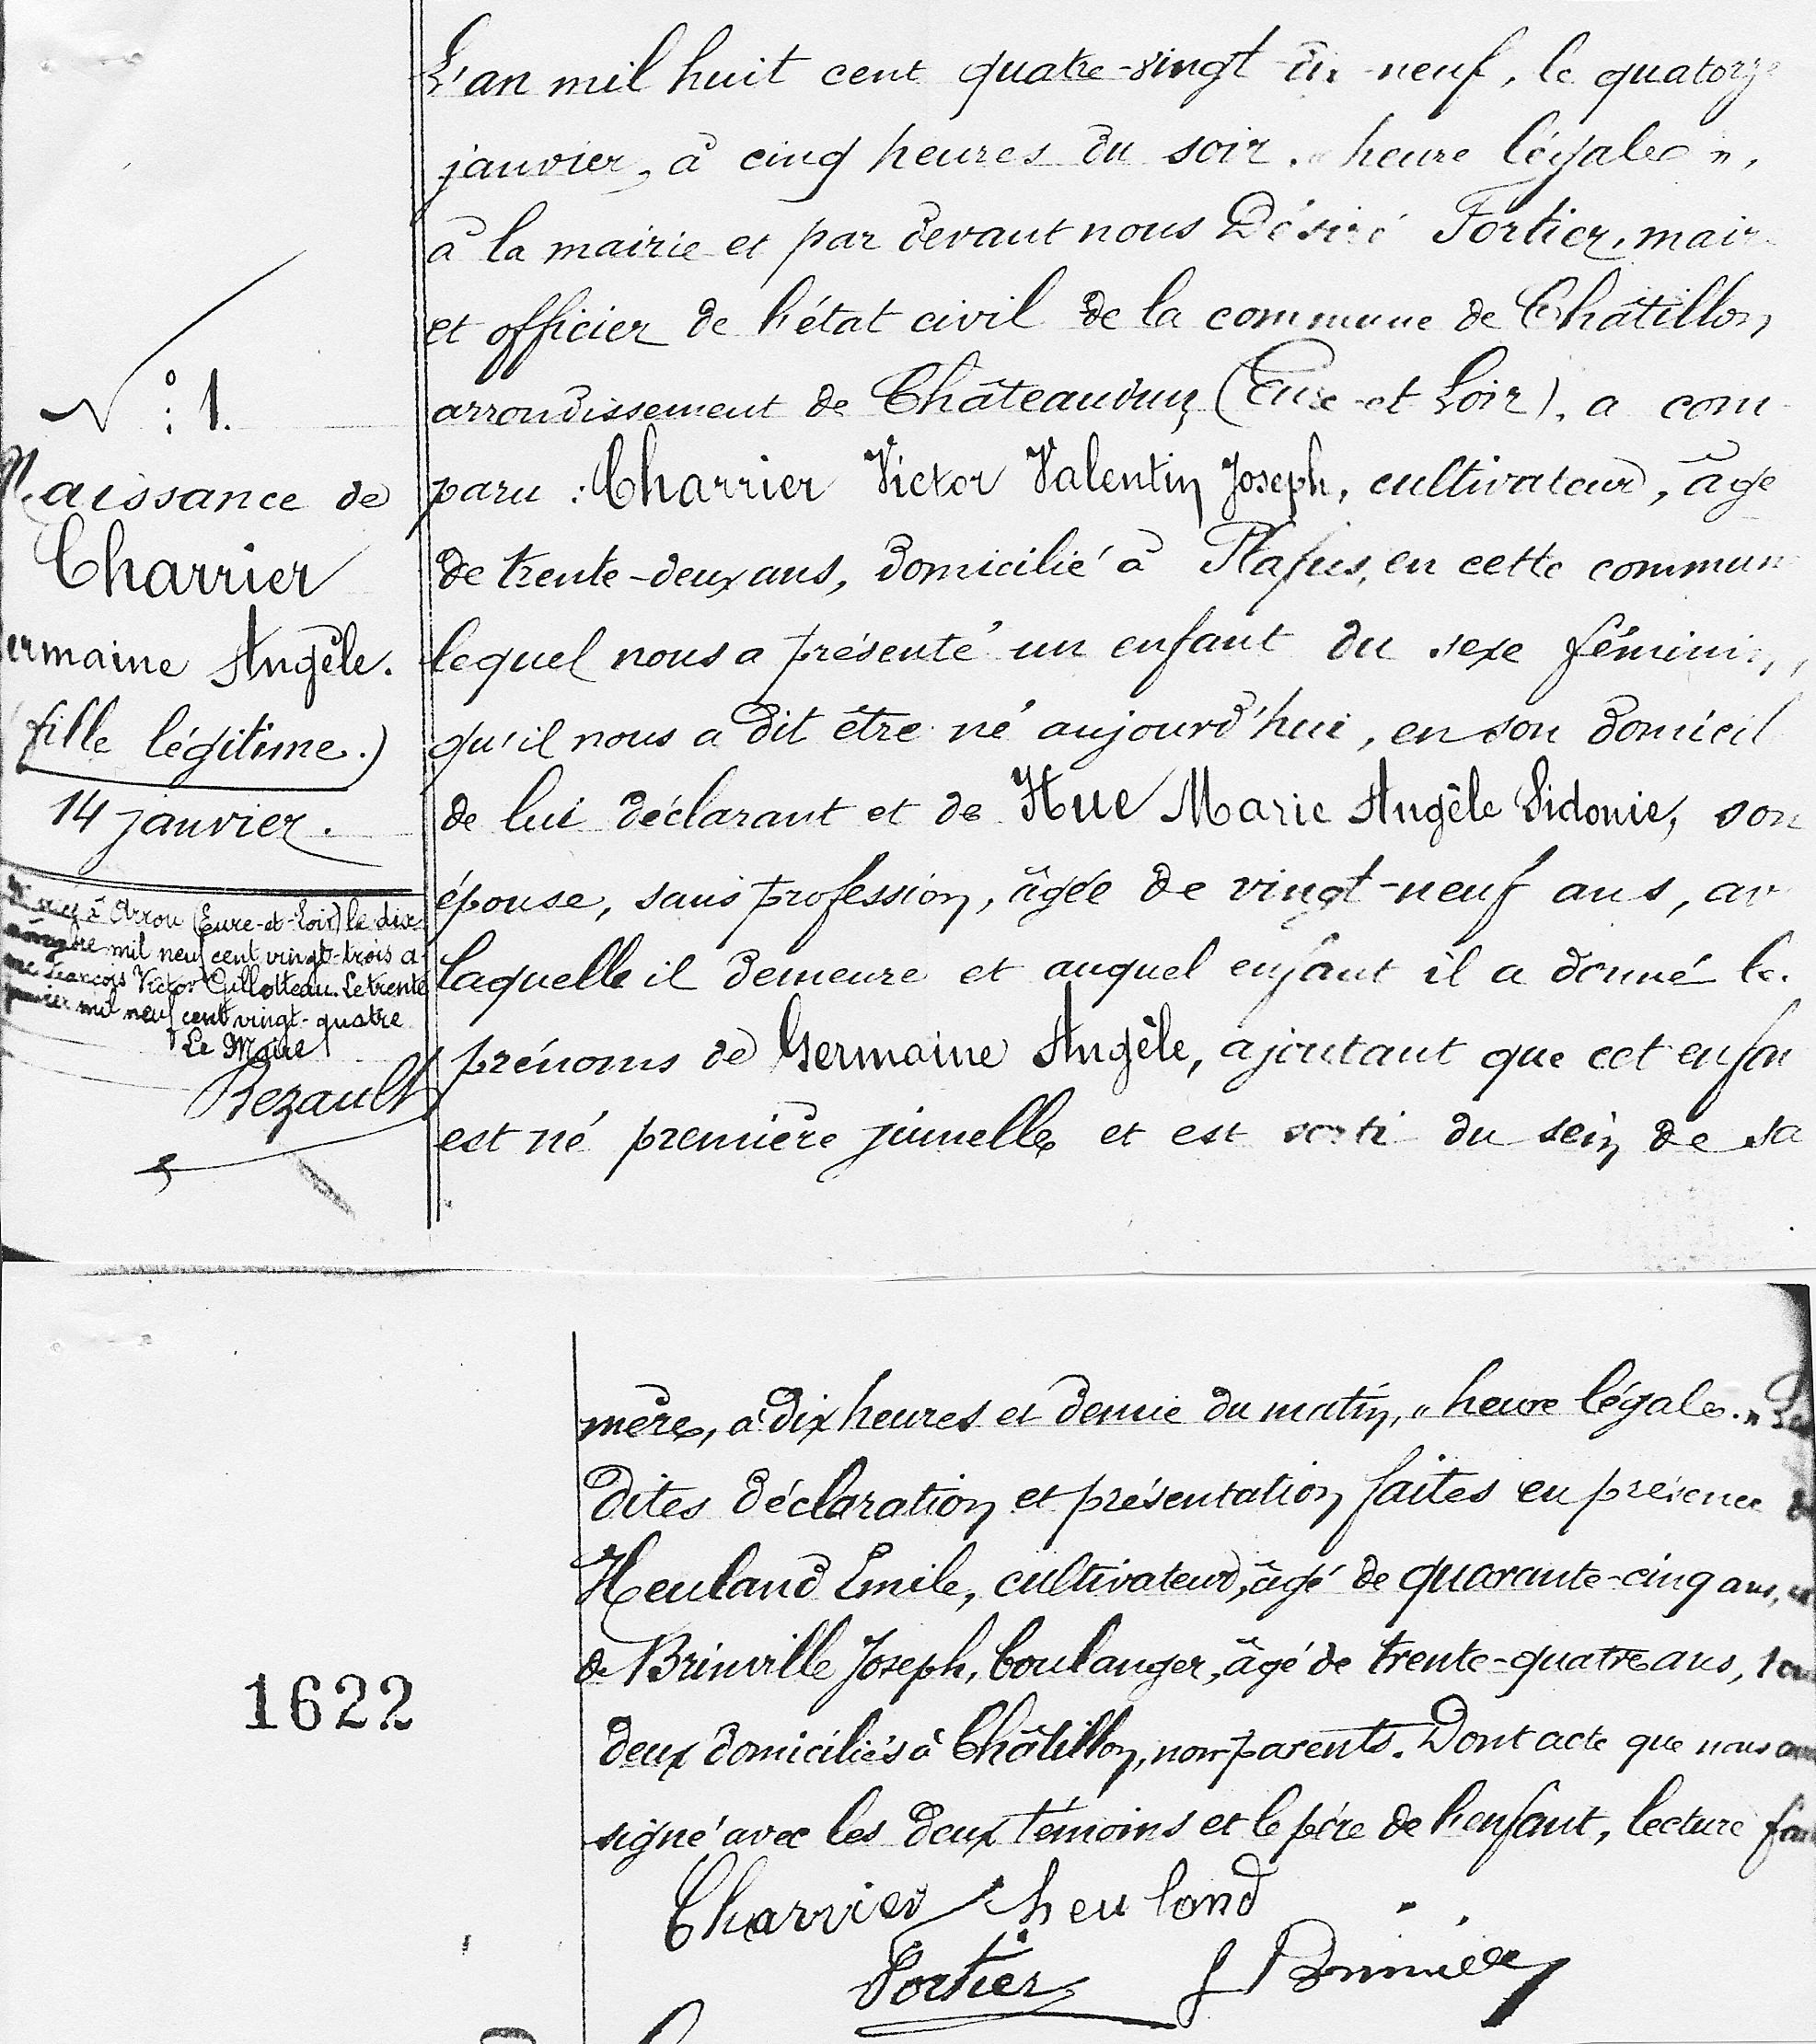 L'an mil huit cent quatre-vingt dix-neuf, le quatorze
janvier, à cinq heures du soir. « heure légale »,
à la mairie et par devant nous Désiré Fortier, mair
et officier de l'état civil de la commune de Châtillon
arrondissement de Châteaudun (Eure-et-Loir), a com
paru : Charrier Victor Valentin Joseph, cultivateur, âgé
de trente-deux ans, domicilié à Plafus, en cette commun
lequel nous a présenté un enfant du sexe féminin,
qu'il nous a dit être né aujourd'hui, en son domicil
de lui déclarant et de Hue Marie Angèle Sidonie, son
épouse, sans profession, âgée de vingt-neuf ans, av
laquelle il demeure et auquel enfant il a donné le
prénoms de Germaine Angèle, ajoutant que cet enfan
est né première jumelle et est sorti du sein de sa
N° : 1.
Naissance de
Charrier
ermaine Angèle.
(fille légitime.)
14 janvier.
à Arrou (Eure-et-Loir) le dix
mil neuf cent vingt-trois a
François Victor Gillotteau. Le trente
mil neuf cent vingt-quatre
Le Maire
Bezault
mère, à dix heures et demie du matin, « heure légale. »
dites déclaration et présentation faites en présence
Heuland Emile, cultivateur, âgé de quarante-cinq ans,
de Brinville Joseph, boulanger, âgé de trente-quatre ans,
deux domiciliés à Châtillon, non parents. Dont acte que nous
signé avec les deux témoins et le père de l'enfant, lecture
1622
Charrier heuland
Fortier J Brinville